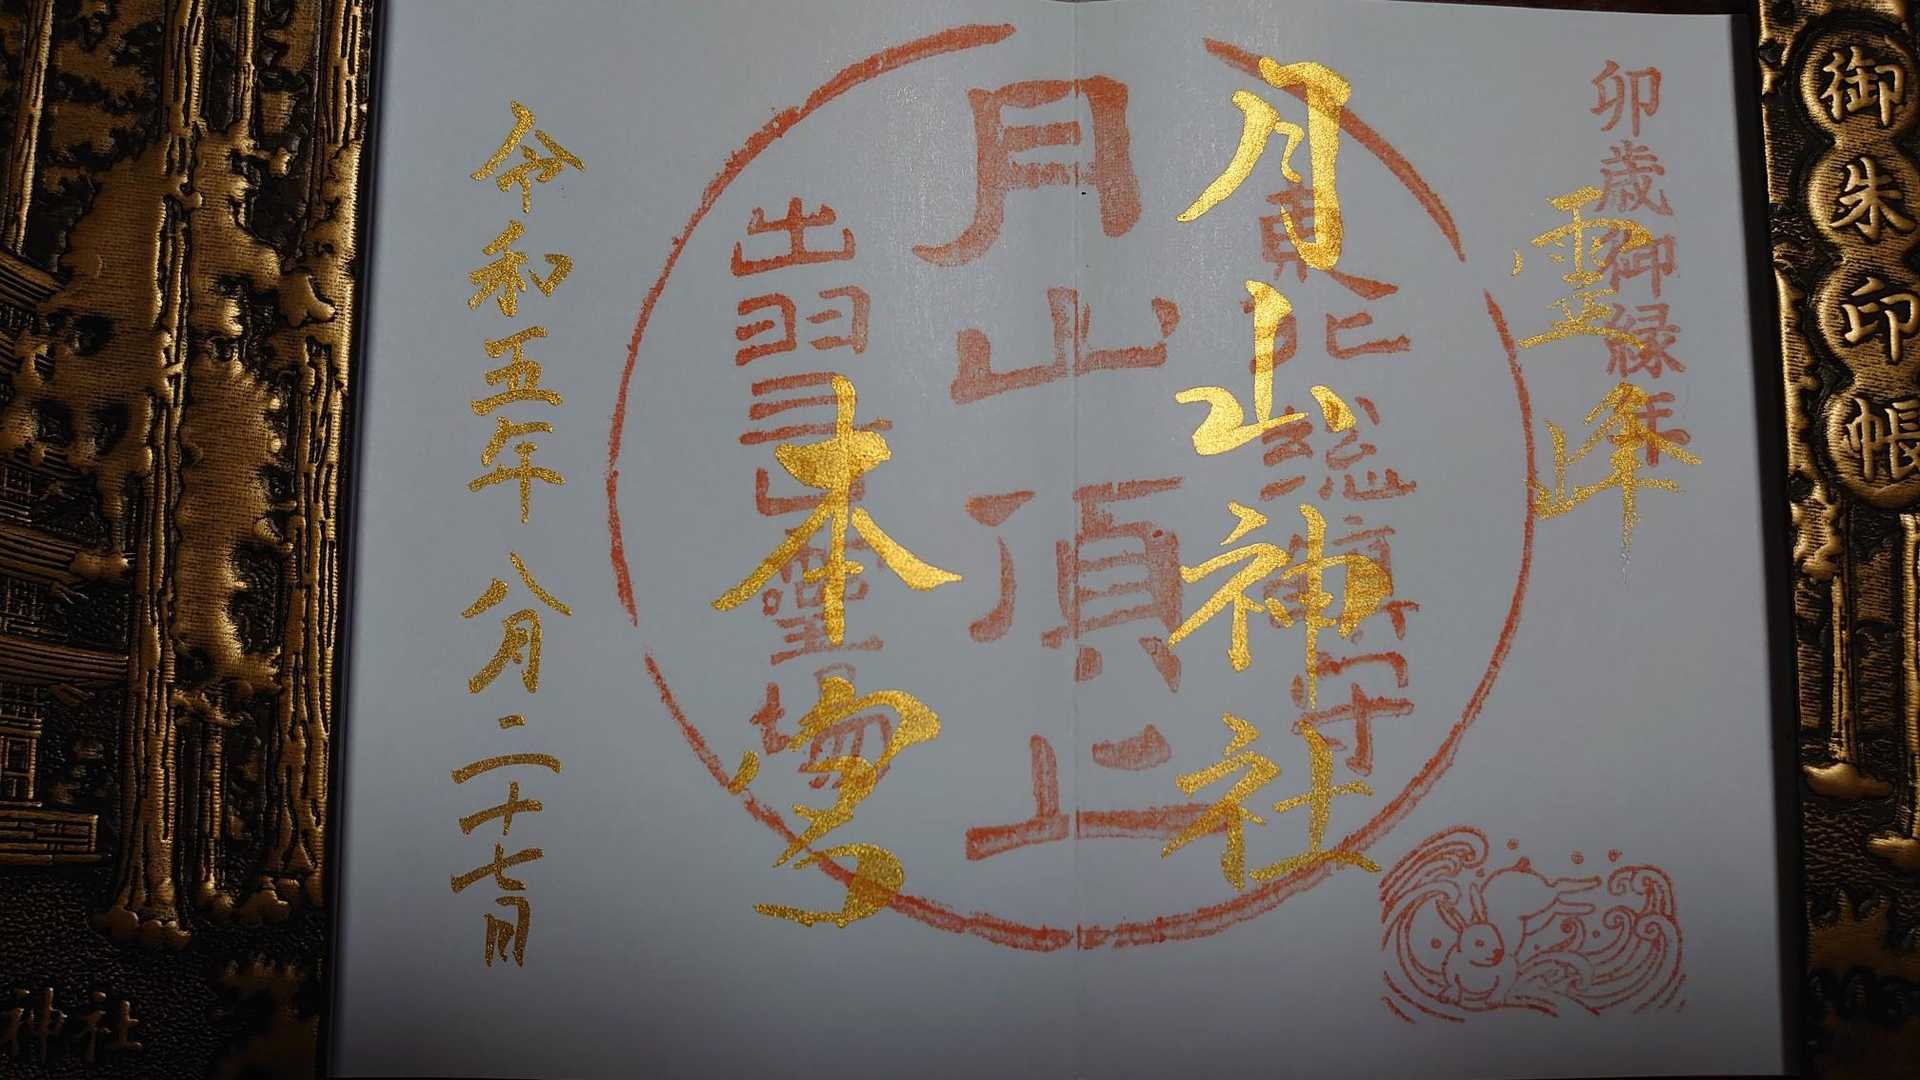 御朱印帳
卯歳御縁年
霊峰
月山神社
東北総鎮守
月山頂上
出羽三山霊場
本宮
令和五年八月二十七日
神社